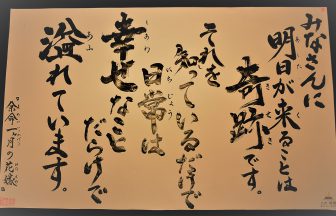 みなさんに
明日が来ることは
奇跡です。
それを
知っているだけで
日常は
幸せなこと
だらけで
溢れています。
"余命一ヶ月の花嫁"